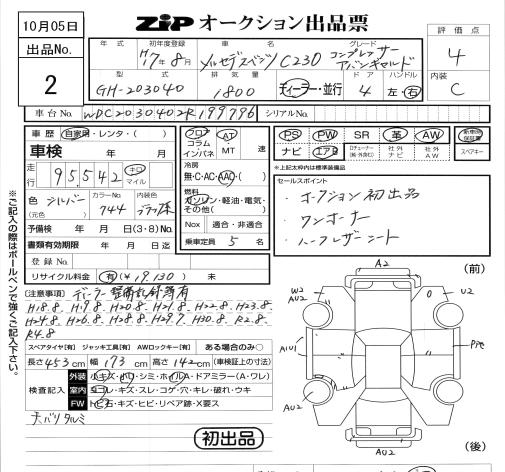 10月05日
ZIP オークション出品票
評価点
4
内装
C
出品No.
2
年式 初年度登録 車名 グレード
H17年8月 メルセデスベンツ C230 コンプレッサー アバンギャルド
型式 排気量 ドア ハンドル
GH-203040 1800 ディーラー・並行 4 左・右
車台No. WDC2030402R199796 シリアルNo.
車歴 自家用・レンタ・( )
車検 年 月
走行 95,542 キロ マイル
色 シルバー カラーNo. 744 内装色 ブラック系
(元色)
予備検 年 月 日(3・8)No.
書類有効期限 年 月 日迄
登録No.
リサイクル料金 有(¥19,130) 未
フロア コラム インパネ AT MT 速
冷房
無・C・AC・AAC
燃料
ガソリン・軽油・電気・その他( )
Nox 適合・非適合
乗車定員 5 名
PS PW SR 革 AW 新車時保証書
ナビ エアB 社外ナビ 社外AW スペアキー
※上記太枠内は標準装備品
セールスポイント
・オークション初出品
・ワンオーナー
・ハーフレザーシート
※ご記入の際はボールペンで強くご記入下さい。
(注意事項) ディーラー整備記録簿有
H18.8 H19.8 H20.8 H21.8 H22.8 H23.8
H24.8 H26.8 H28.8 H29.7 H30.8 R2.8
R4.8
スペアタイヤ[有] ジャッキ工具[有] AWロックキー[有] ある場合のみ○
長さ453cm 幅173cm 高さ142cm (車検証上の寸法)
検査記入
外装 小キズ・ホイル・ドアミラー(A・ワレ)
室内 ヨゴレ・キズ・スレ・コゲ・穴・キレ・破れ・ウキ
FW トビ石・キズ・ヒビ・リペア跡・X要ス
天バリタルミ
初出品
(前)
A2
W2
AU2
U2
AU1
AU2
A2
(後)